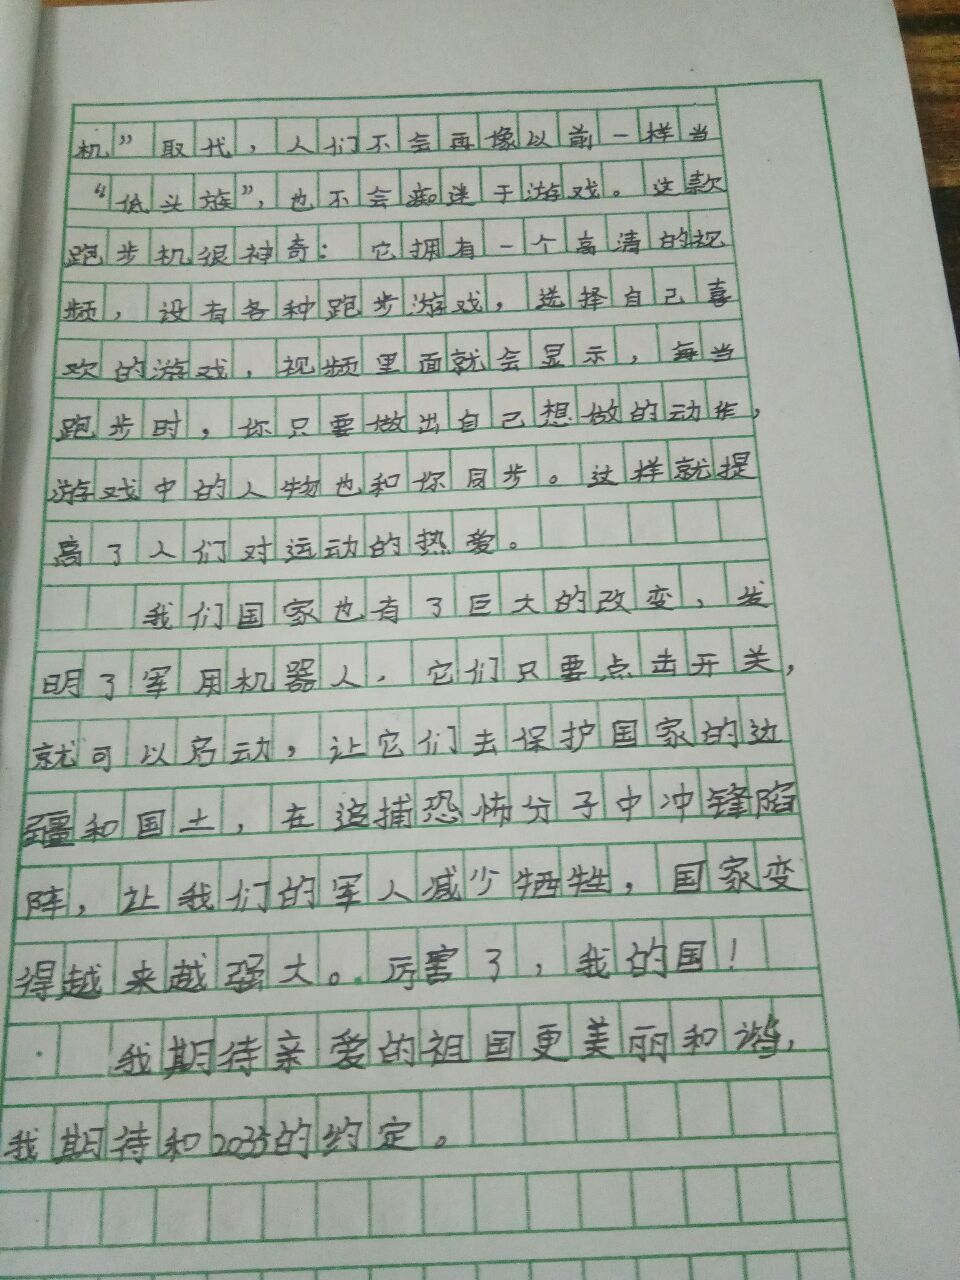 机”取代，人们不会再像以前一样当
“低头族”，也不会痴迷于游戏。这款
跑步机很神奇：它拥有一个高清的视
频，设有各种跑步游戏，选择自己喜
欢的游戏，视频里面就会显示，每当
跑步时，你只要做出自己想做的动作，
游戏中的人物也和你同步。这样就提
高了人们对运动的热爱。
我们国家也有了巨大的改变，发
明了军用机器人，它们只要点击开关，
就可以启动，让它们去保护国家的边
疆和国土，在追捕恐怖分子中冲锋陷
阵，让我们的军人减少牺牲，国家变
得越来越强大。厉害了，我的国！
我期待亲爱的祖国更美丽和谐，
我期待和2035的约定。